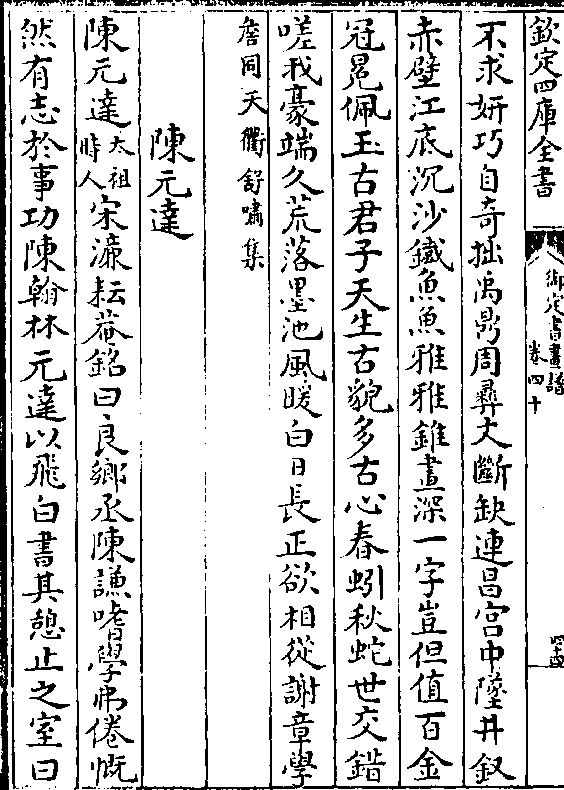 欽定四庫全書
御定書畫譜
卷四十
不求妍巧自奇拙禹鼎周彞丈斷缺連昌宫中墜井釵
赤壁江底沉沙鐵魚魚雅雅錐畫深一字豈但值百金
冠冕佩玉古君子天生古貌多古心春蚓秋蛇世交錯
嗟我豪端久荒落墨池風暖白日長正欲相從謝章學
詹同天衢舒嘯集
陳元達
陳元達太祖時人宋濂耘菴銘曰良鄉丞陳謙嗜學弗倦慨
然有志於事功陳翰林元達以飛白書其憩止之室曰